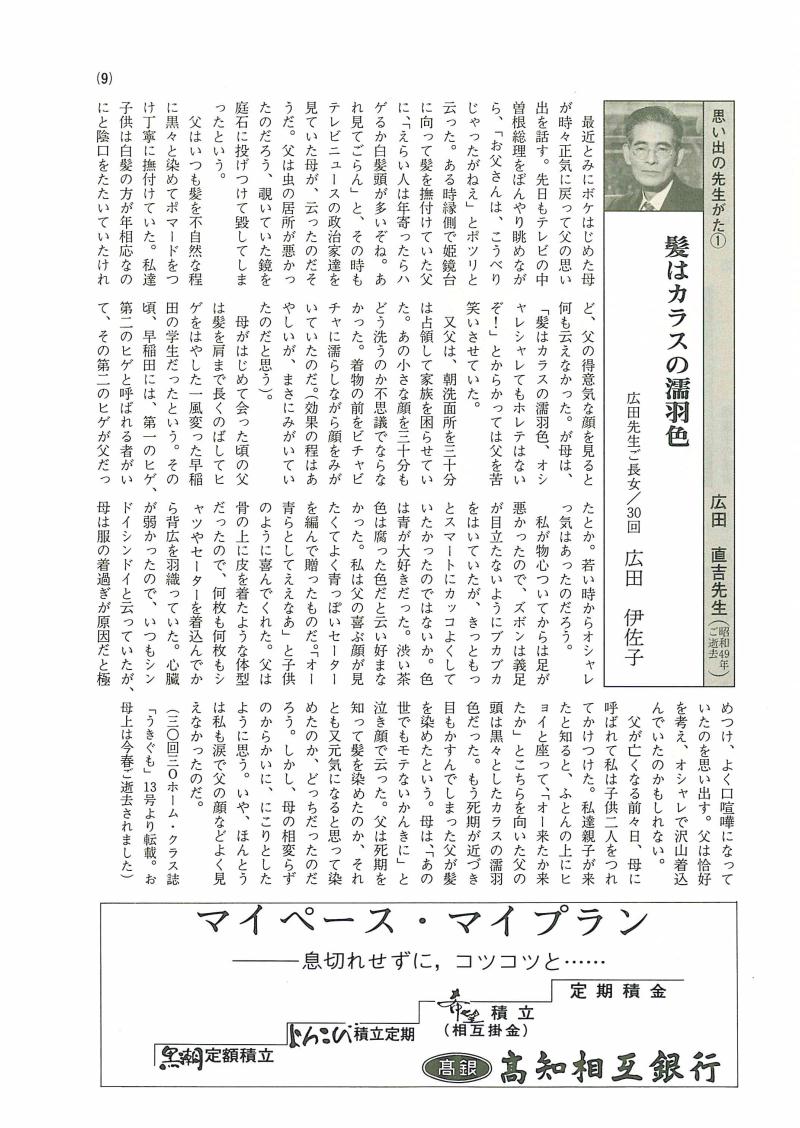 (9)
思い出の先生がた①
広田　直吉先生(昭和49年ご逝去)
髪はカラスの濡羽色
広田先生ご長女／30回　広田　伊佐子
最近とみにボケはじめた母
が時々正気に戻って父の思い
出を話す。先日もテレビの中
曽根総理をぼんやり眺めなが
ら、「お父さんは、こうべり
じゃったがねえ」とポツリと
云った。ある時縁側で姫鏡台
に向って髪を撫付けていた父
に、「えらい人は年寄ったらハ
ゲるか白髪頭が多いぞね。あ
れ見てごらん」と、その時も
テレビニュースの政治家達を
見ていた母が、云ったのだそ
うだ。父は虫の居所が悪かっ
たのだろう、覗いていた鏡を
庭石に投げつけて毀してしま
ったという。
父はいつも髪を不自然な程
に黒々と染めてポマードをつ
け丁寧に撫付けていた。私達
子供は白髪の方が年相応なの
にと陰口をたたいていたけれ
ど、父の得意気な顔を見ると
何も云えなかった。が母は、
「髪はカラスの濡羽色、オシ
ャレシャレてもホレテはない
ぞ！」とからかっては父を苦
笑いさせていた。
又父は、朝洗面所を三十分
は占領して家族を困らせてい
た。あの小さな顔を三十分も
どう洗うのか不思議でならな
かった。着物の前をビチャビ
チャに濡らしながら顔をみが
いていたのだ。(効果の程はあ
やしいが、まさにみがいてい
たのだと思う)。
母がはじめて会った頃の父
は髪を肩まで長くのばしてヒ
ゲをはやした一風変った早稲
田の学生だったという。その
頃、早稲田には、第一のヒゲ、
第二のヒゲと呼ばれる者がい
て、その第二のヒゲが父だっ
たとか。若い時からオシャレ
っ気はあったのだろう。
私が物心ついてからは足が
悪かったので、ズボンは義足
が目立たないようにブカブカ
をはいていたが、きっともっ
とスマートにカッコよくして
いたかったのではないか。色
は青が大好きだった。渋い茶
色は腐った色だと云い好まな
かった。私は父の喜ぶ顔が見
たくてよく青っぽいセーター
を編んで贈ったものだ。「オー
青らとしてええなあ」と子供
のように喜んでくれた。父は
骨の上に皮を着たような体型
だったので、何枚も何枚もシ
ャツやセーターを着込んでか
ら背広を羽織っていた。心臓
が弱かったので、いつもシン
ドイシンドイと云っていたが、
母は服の着過ぎが原因だと極
めつけ、よく口喧嘩になって
いたのを思い出す。父は恰好
を考え、オシャレで沢山着込
んでいたのかもしれない。
父が亡くなる前々日、母に
呼ばれて私は子供二人をつれ
てかけつけた。私達親子が来
たと知ると、ふとんの上にヒ
ョイと座って、「オー来たか来
たか」とこちらを向いた父の
頭は黒々としたカラスの濡羽
色だった。もう死期が近づき
目もかすんでしまった父が髪
を染めたという。母は、「あの
世でもモテないかんきに」と
泣き顔で云った。父は死期を
知って髪を染めたのか、それ
とも又元気になると思って染
めたのか、どっちだったのだ
ろう。しかし、母の相変らず
のからかいに、にこりとした
ように思う。いや、ほんとう
は私も涙で父の顔などよく見
えなかったのだ。
(三〇回三Ｏホーム・クラス誌
「うきぐも」13号より転載。お
母上は今春ご逝去されました)
マイペース・マイプラン
――息切れせずに，コツコツと……
定期積金
希望積立
(相互掛金)
よろこび積立定期
黒潮定額積立
高銀 高知相互銀行